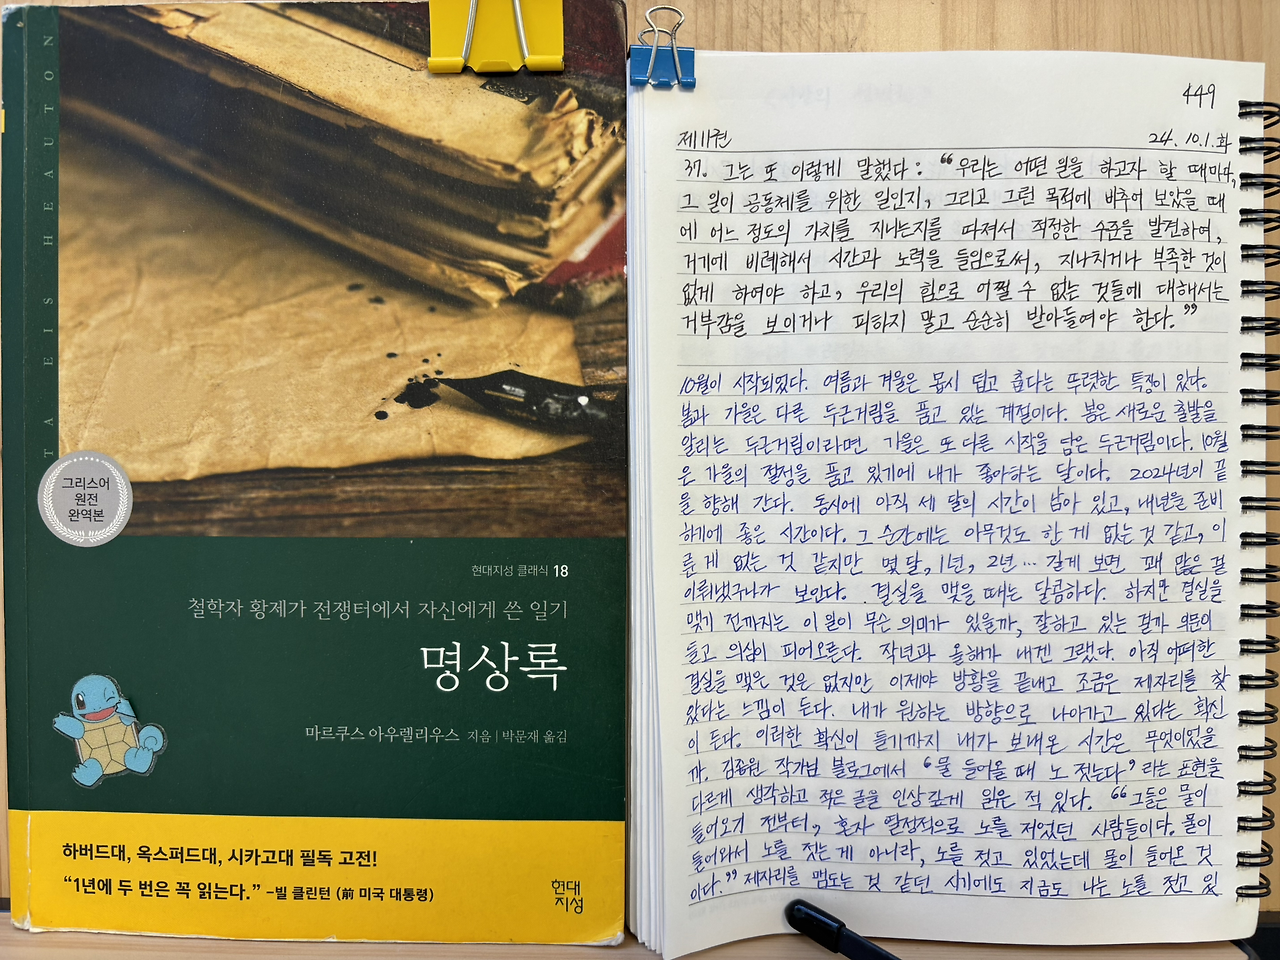 TA EIS HEAUTON
그리스어
원전
완역본
현대지성 클래식 18
철학자 황제가 전쟁터에서 자신에게 쓴 일기
명상록
마르쿠스 아우렐리우스 지음 | 박문재 옮김
하버드대, 옥스퍼드대, 시카고대 필독 고전!
“1년에 두 번은 꼭 읽는다.” –빌 클린턴 (前 미국 대통령)
현대
지성
449
제11권 24. 10.1. 화
37. 그는 또 이렇게 말했다 : “우리는 어떤 일을 하고자 할 때마다,
그 일이 공동체를 위한 일인지, 그리고 그런 목적에 비추어 보았을 때
에 어느 정도의 가치를 지니는지를 따져서 적정한 수준을 발견하여,
거기에 비례해서 시간과 노력을 들임으로써, 지나치거나 부족한 것이
없게 하여야 하고, 우리의 힘으로 어쩔 수 없는 것들에 대해서는
거부감을 보이거나 피하지 말고 순순히 받아들여야 한다.”
10월이 시작되었다. 여름과 겨울은 몹시 덥고 춥다는 뚜렷한 특징이 있다.
봄과 가을은 다른 두근거림을 품고 있는 계절이다. 봄은 새로운 출발을
알리는 두근거림이라면 가을은 또 다른 시작을 담은 두근거림이다. 10월
은 가을의 절정을 품고 있기에 내가 좋아하는 달이다. 2024년이 끝
을 향해 간다. 동시에 아직 세 달의 시간이 남아 있고, 내년을 준비
하기에 좋은 시간이다. 그 순간에는 아무것도 한 게 없는 것 같고, 이
룬 게 없는 것 같지만 몇 달, 1년, 2년… 길게 보면 꽤 많은 걸
이뤄냈구나가 보인다. 결실을 맺을 때는 달콤하다. 하지만 결실을
맺기 전까지는 이 일이 무슨 의미가 있을까, 잘하고 있는 걸까 의문이
들고 의심이 피어오른다. 작년과 올해가 내겐 그랬다. 아직 어떠한
결실을 맺은 것은 없지만 이제야 방황을 끝내고 조금은 제자리를 찾
았다는 느낌이 든다. 내가 원하는 방향으로 나아가고 있다는 확신
이 든다. 이러한 확신이 들기까지 내가 보내온 시간은 무엇이었을
까. 김종원 작가님 블로그에서 ‘물 들어올 때 노 젓는다’ 라는 표현을
다르게 생각하고 적은 글을 인상깊게 읽은 적 있다. “그들은 물이
들어오기 전부터, 혼자 열정적으로 노를 저었던 사람들이다. 물이
들어와서 노를 젓는 게 아니라, 노를 젓고 있었는데 물이 들어온 것
이다.” 제자리를 맴도는 것 같던 시기에도 지금도 나는 노를 젓고 있